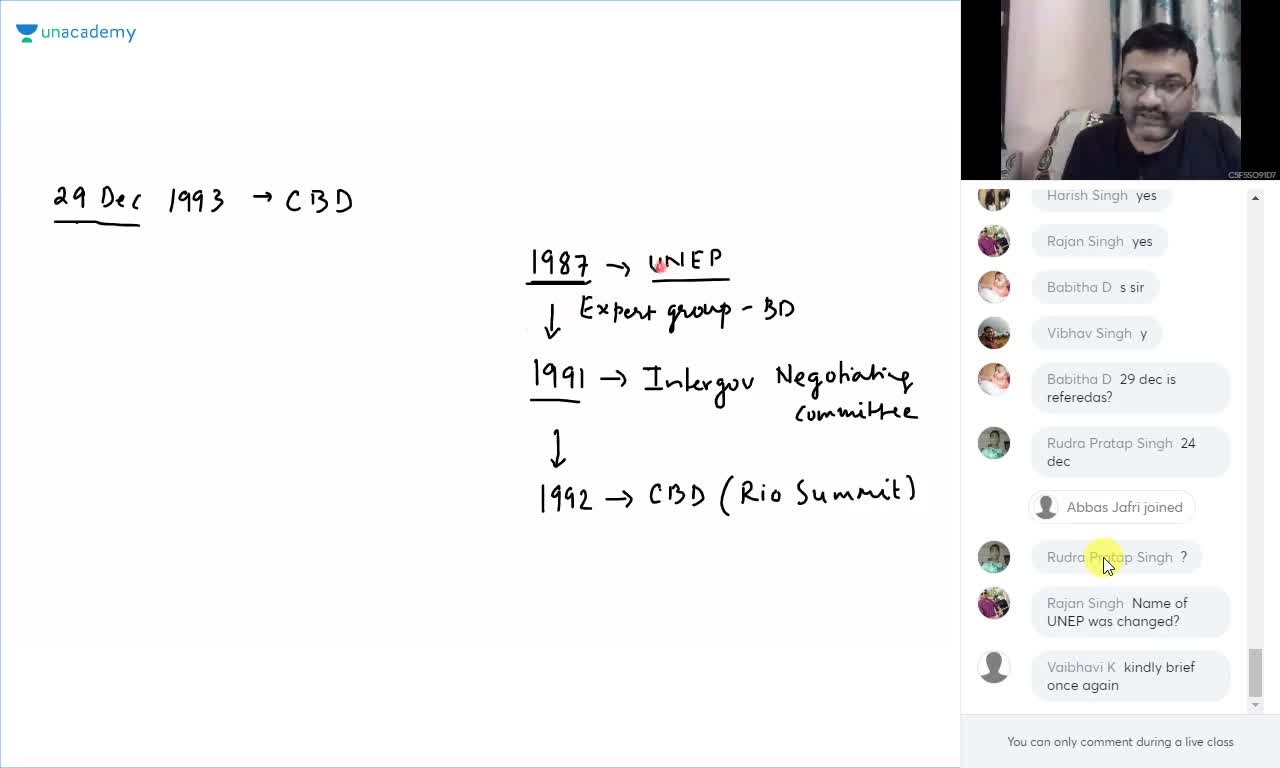 unacademy
29 Dec 1993 → CBD
1987 → UNEP
↓ Expert group - BD
1991 → Intergov Negotiating
committee
↓
1992 → CBD (Rio Summit)
CSFSSO91D7
Harish Singh yes
Rajan Singh yes
Babitha D s sir
Vibhav Singh y
Babitha D 29 dec is
referedas?
Rudra Pratap Singh 24
dec
Abbas Jafri joined
Rudra Pratap Singh ?
Rajan Singh Name of
UNEP was changed?
Vaibhavi K kindly brief
once again
You can only comment during a live class